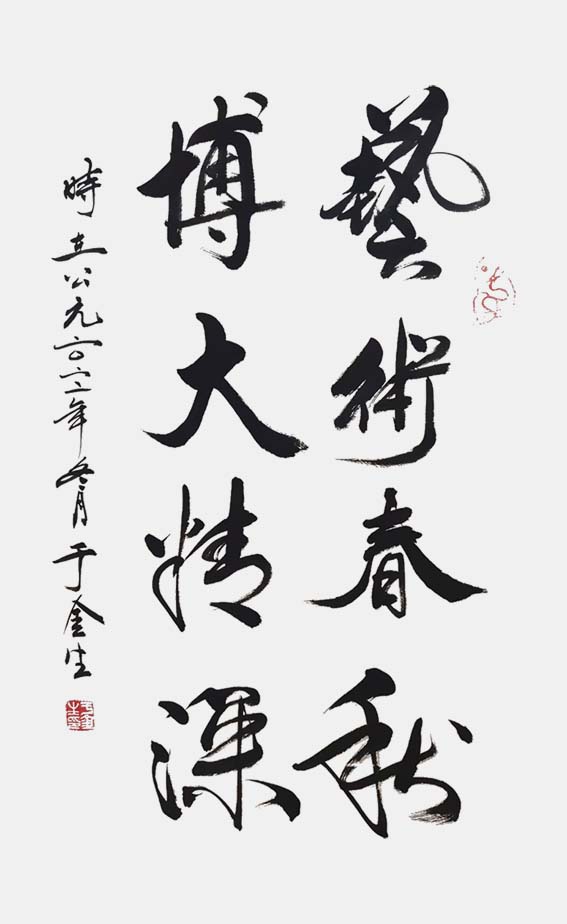 藝術春秋
博大精深
時在公元二〇二二年冬月于金生